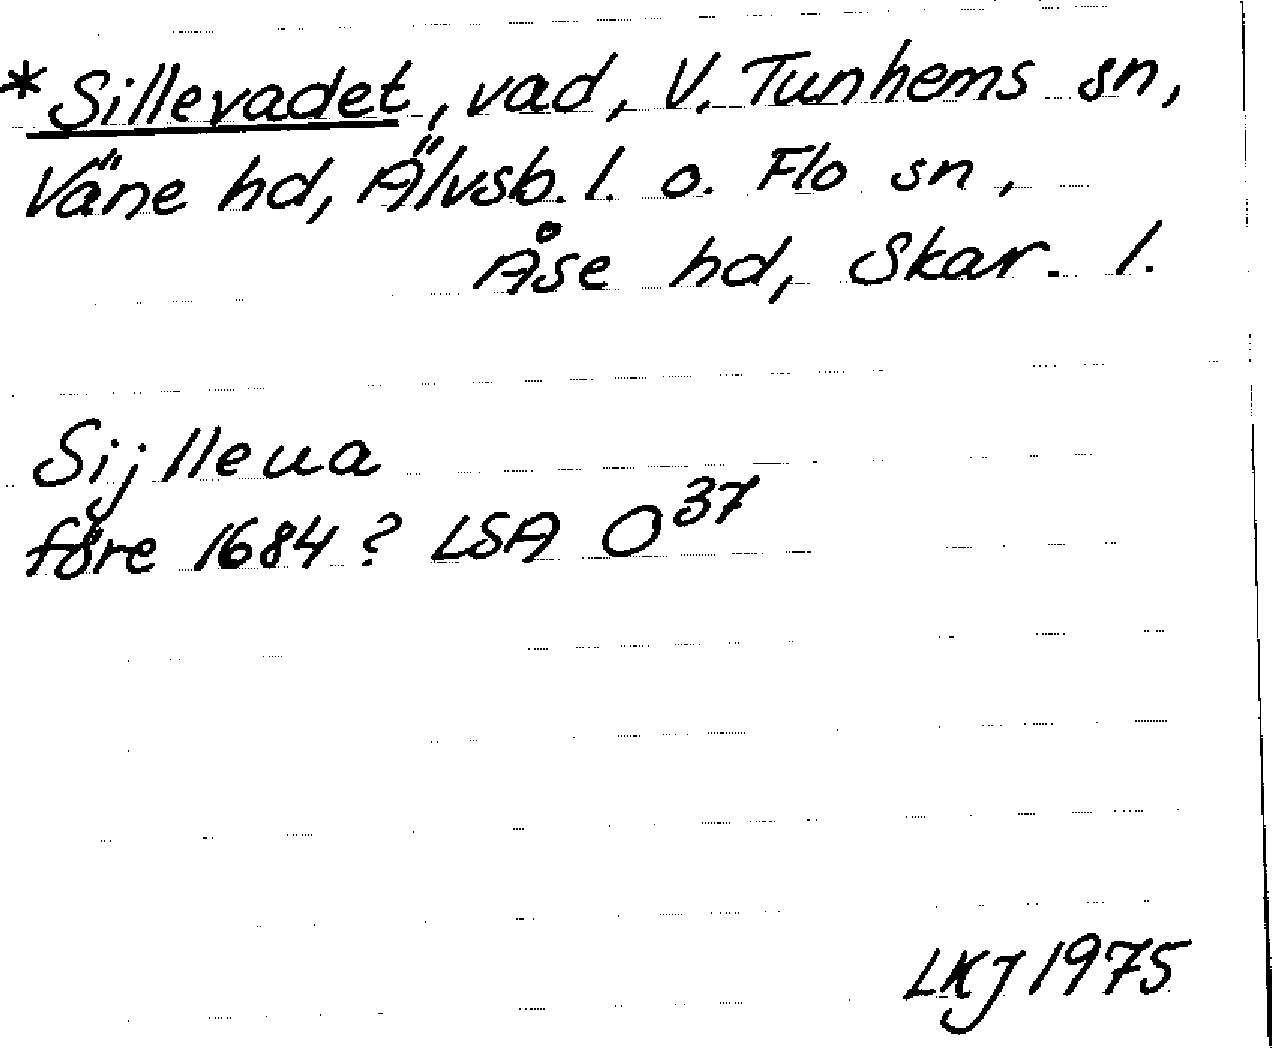 *Sillevadet, vad, V. Tunhems sn,
Väne hd, Älvsb. l. o. Flo sn,
Åse hd, Skar. l.
Sijlleua
före 1684? LSA O37
LKJ 1975